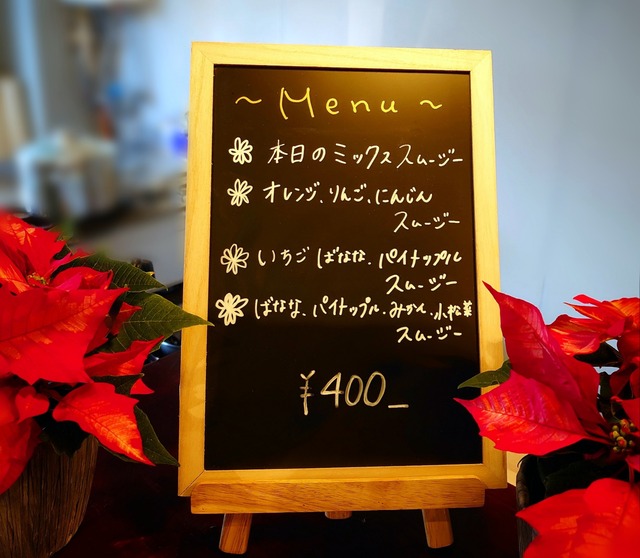 ~ Menu ~
本日のミックススムージー
オレンジ、りんご、にんじん
スムージー
いちご ばなな、パイナップル
スムージー
ばなな、パイナップル、みかん、小松菜
スムージー
¥400_